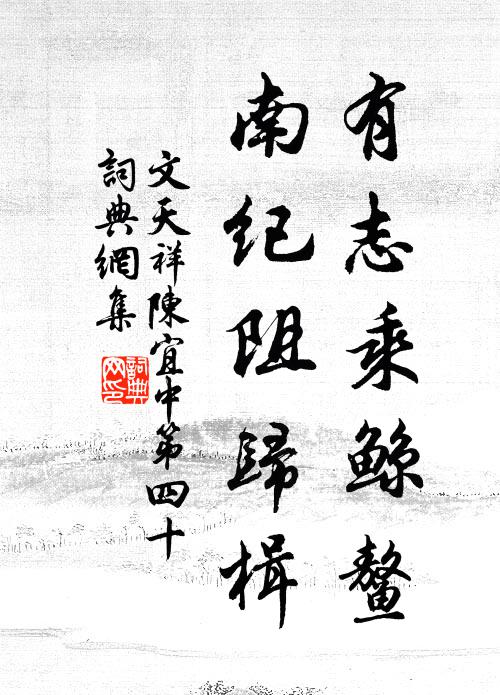 有志乘鯨鼇
南纪阻歸楫
文天祥陳宜中第四十
詞典網集
詞典
网印